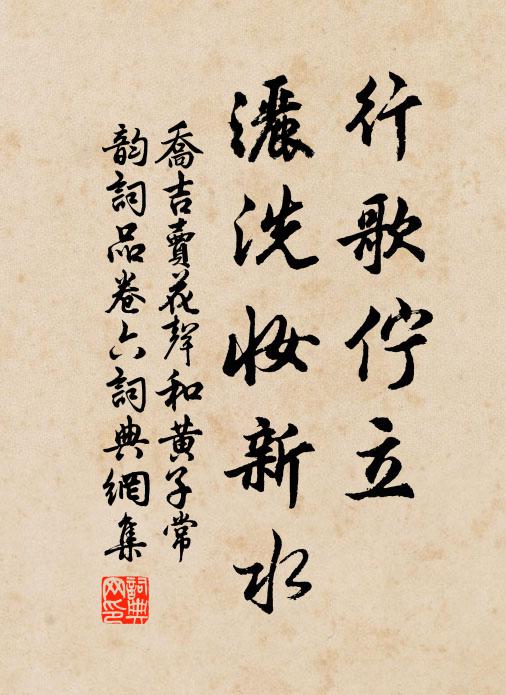 行歌佇立
灑洗妝新水
喬吉賣花聲和黃子常
韵詞品卷六詞典網集
詞典網印